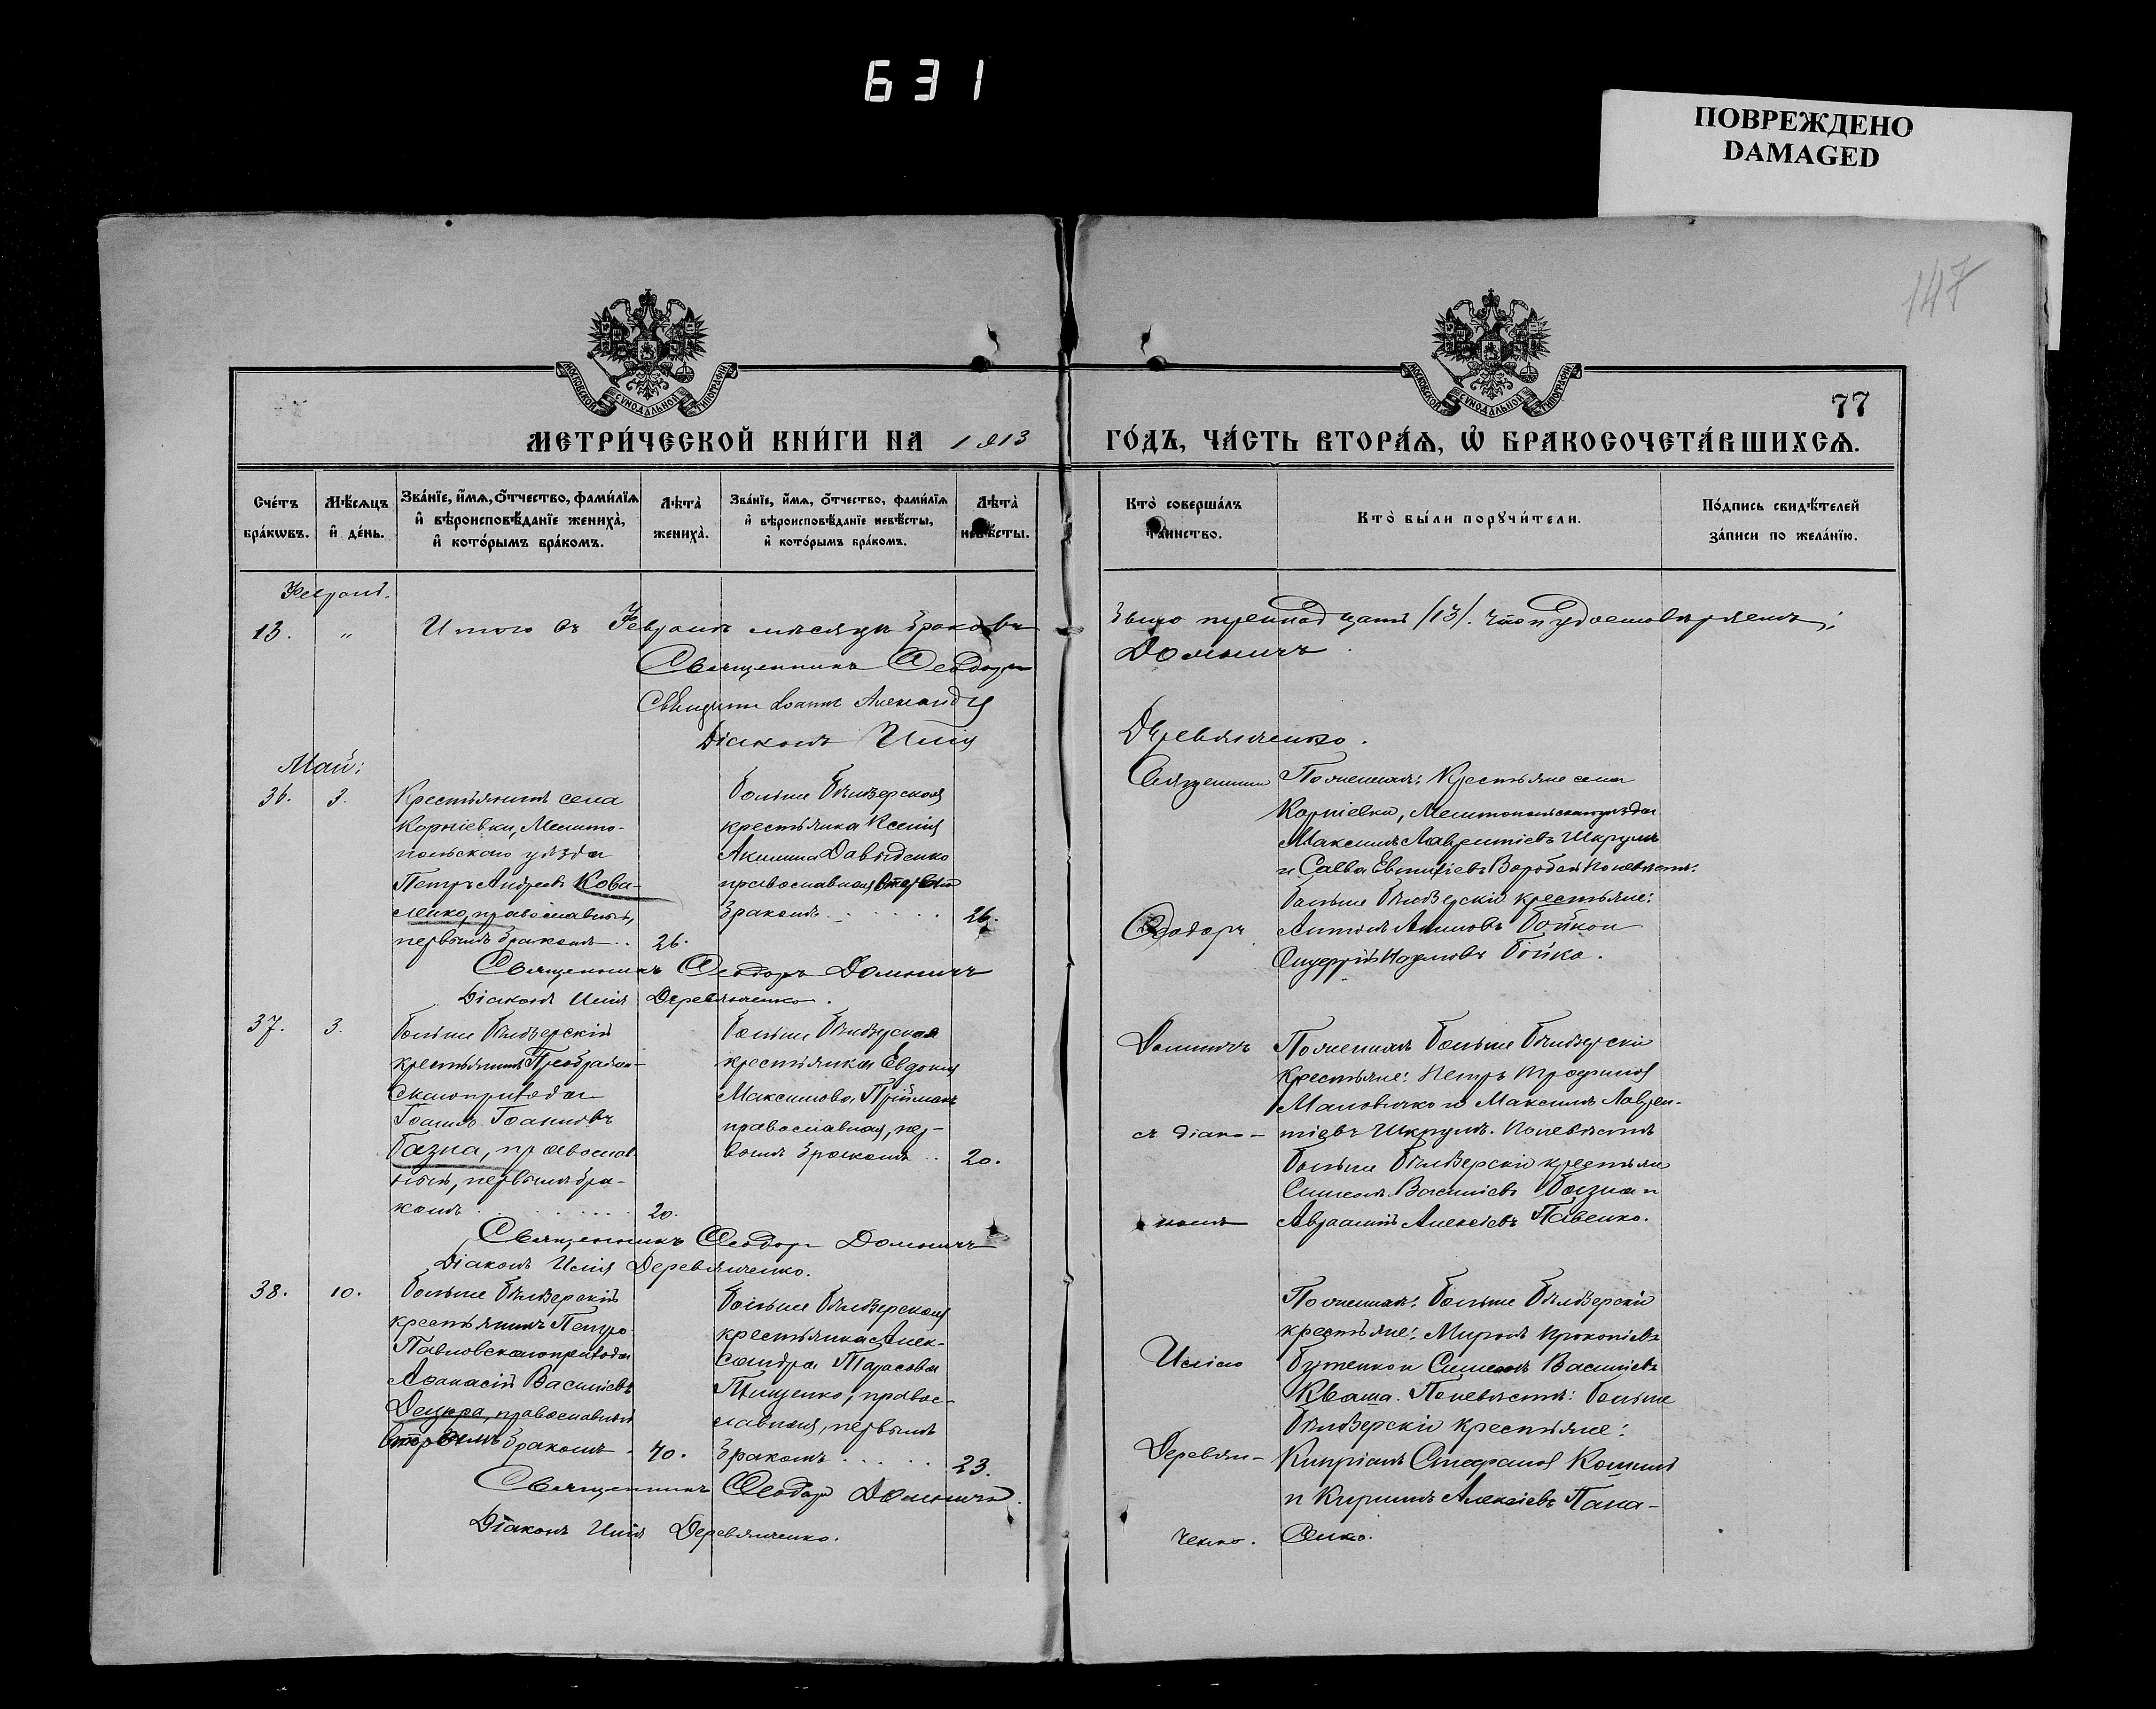 631
ПОВРЕЖДЕНО
DAMAGED
147
МОСКОВСКОЙ СѴНОДАЛЬНОЙ ТИПОГРАФІИ
МОСКОВСКОЙ СѴНОДАЛЬНОЙ ТИПОГРАФІИ
77
МЕТРИ́ЧЕСКОЙ КНИ́ГИ НА 1913
ГО́ДЪ, ЧА́СТЬ ВТОРА́Я, Ѡ҆ БРАКОСОЧЕТА́ВШИХСЯ.
Сче́тъ бра́кѡвъ.
Мѣ́сяцъ и҆ де́нь.
Зва́нїе, и҆́мя, ѻ҆́тчество, фами́лїя
и҆ вѣроисповѣ́данїе жениха̀,
и҆ кото́рымъ бра́комъ.
Лѣта̀ жениха̀.
Зва́нїе, и҆́мя, ѻ҆́тчество, фами́лїя
и҆ вѣроисповѣ́данїе невѣ́сты,
и҆ кото́рымъ бра́комъ.
Лѣта̀ невѣ́сты.
Кто̀ соверша́лъ таинство.
Кто̀ бы́ли порꙋчи́тели.
По́дпись свидѣ́телей
за́писи по жела́нїю.
13. " Итого въ Февралѣ мѣсяцѣ браковъ
было тринадцать /13/. Что и удостовѣряемъ:
Священникъ Феодоръ
Домничъ.
Діаконъ Илія
Деревянченко.
Май:
36. 3.
Крестьянинъ села
Корніевки, Мелито-
польскаго уѣзда
Петръ Андреевъ Кова-
ленко, православный,
первымъ бракомъ.. 26.
Больше Бѣлозерская
крестьянка Ксенія
Давыденко
православная
бракомъ 26.
Священникъ
Феодоръ
По женихѣ: Крестьяне села
Корніевки, Мелитопольскаго уѣзда
Максимъ Лаврентіевъ Шкрумъ
и Савва Воробей По невѣстѣ:
больше Бѣлозерскіе крестьяне:
Антонъ Бойко и
Наумовъ Бойко.
Священникъ Феодоръ Домничъ
Діаконъ Илія Деревянченко.
37. 3.
Больше Бѣлозерскій
крестьянинъ Преображен-
скаго прихода
Іоаннъ Іоанновъ
Базна, православ
ный, первымъ бра-
комъ 20.
Больше Бѣлозерская
крестьянка Евдокія
Максимова Прійманъ
православная, пер-
вымъ бракомъ .. 20.
Домничъ
съ діако-
номъ
По женихѣ Больше Бѣлозерскіе
крестьяне: Петръ Трофимовъ
и Максимъ Лаврен-
тіевъ Шкрумъ. По невѣстѣ
больше Бѣлозерскіе крестьяне
Симеонъ Василіевъ Базна и
Авраамій Алексіевъ Павенко.
Священникъ Феодоръ Домничъ
Діаконъ Илія Деревянченко.
38. 10.
Больше Бѣлозерскій
крестьянинъ Петро-
Павловскаго прихода
Афанасій Василіевъ
православный
бракомъ 40.
Больше Бѣлозерская
крестьянка Алек-
сандра Тарасова
Тищенко, правос-
лавная, первымъ
бракомъ 23.
Иліею
Деревян-
ченко.
По женихѣ: Больше Бѣлозерскіе
крестьяне: Миронъ Прокопіевъ
Бутенко и Симеонъ Василіевъ
Кваша. По невѣстѣ: больше
Бѣлозерскіе крестьяне:
Кипріанъ Стефановъ
и Кириллъ Алексіевъ Пана-
сенко.
Священникъ Феодоръ Домничъ.
Діаконъ Илія Деревянченко.